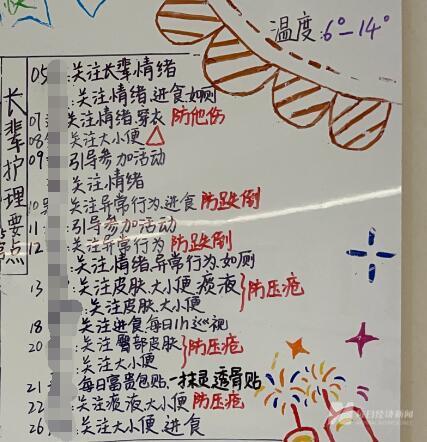 温度:6°—14°
长辈护理要点
05 :关注长辈情绪
:关注情绪.进食.如厕
07 关注情绪.穿衣 防他伤
08 关注大小便 △
09 :引导参加活动
:关注情绪
10 关注异常行为.进食 防跌倒
11 :引导参加活动
12 :关注异常行为 防跌倒
:关注情绪.异常行为.如厕
13 :关注皮肤.大小便.痰液
:关注皮肤.大小便 防压疮
18 :关注进食.每日1h巡视
20 :关注臀部皮肤 防压疮
:关注大小便
21 每日富贵包贴.一抹灵透骨贴
22 :关注痰液.大小便 防压疮
26 :关注大小便.进食
每日经济新闻